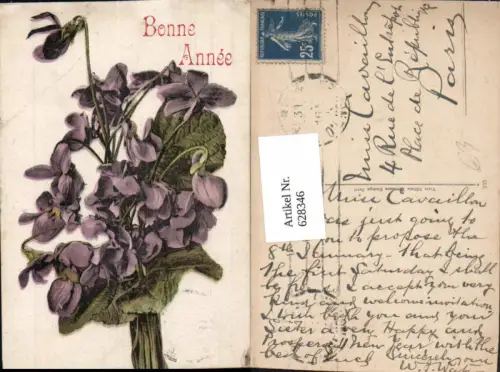 Bonne
Année
25c
Artikel Nr.
628346
Miss Cavaillon
4 Rue de l'Entrepôt
Place de République
Paris
Miss Cavaillon
was just going to
you to propose the
8th January - that being
the first Saturday I shall
be free. I accept your very
kind and welcome invitation
I wish both you and your
sister a very Happy and
Prosperous New Year, with the
best of luck Sincerely yours